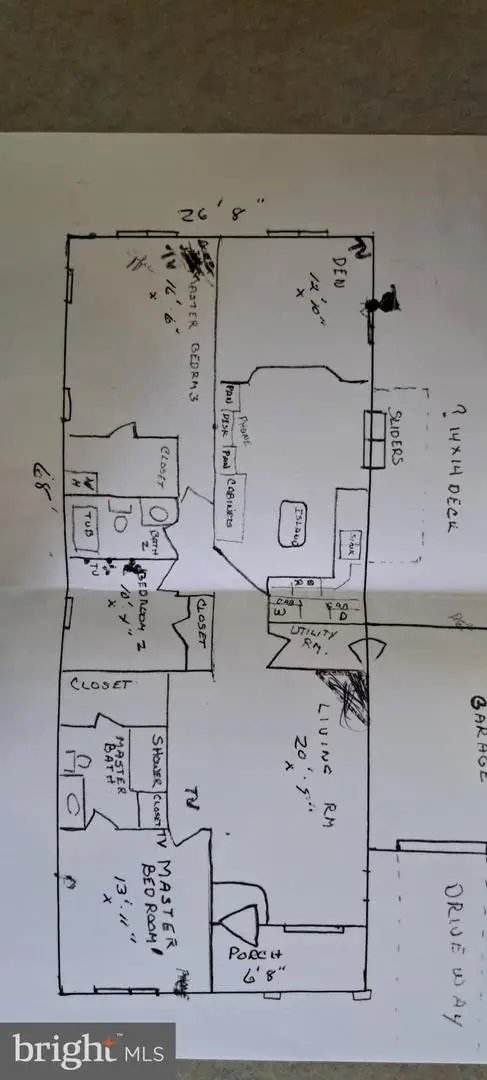 26' 8"
68'
DEN
12' 10"
X
MASTER BEDRM 3
16' 6"
X
TV
SLIDERS
? 14X14 DECK
PAN
DESK
PAN
PHONE
CABINETS
ISLAND
SINK
CLOSET
W
H
TUB
BATH
2
TV
BEDROOM 2
10' 4"
X
CLOSET
CAB
UTILITY
RM.
GARAGE
CLOSET
MASTER
BATH
SHOWER
CLOSET
TV
TV
LIVING RM
20' 5"
X
MASTER
BEDROOM 1
13' 11"
X
PORCH
6' 8"
DRIVEWAY
bright MLS